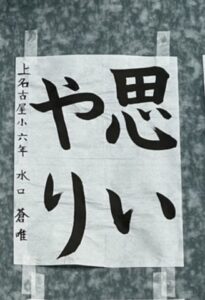 思い
やり
上名古屋小六年 水口 蒼唯